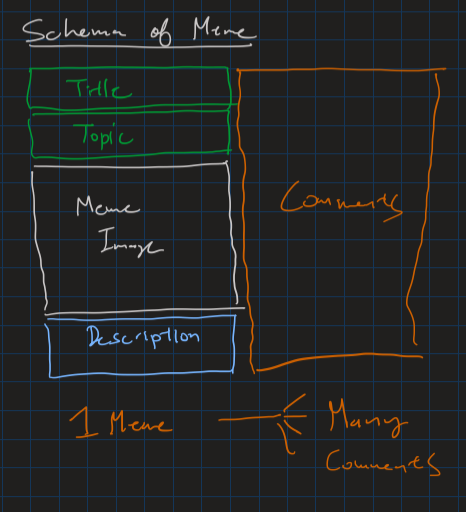 Schema of Meme
Title
Topic
Meme
Image
Description
Comments
1 Meme
Many
Comments